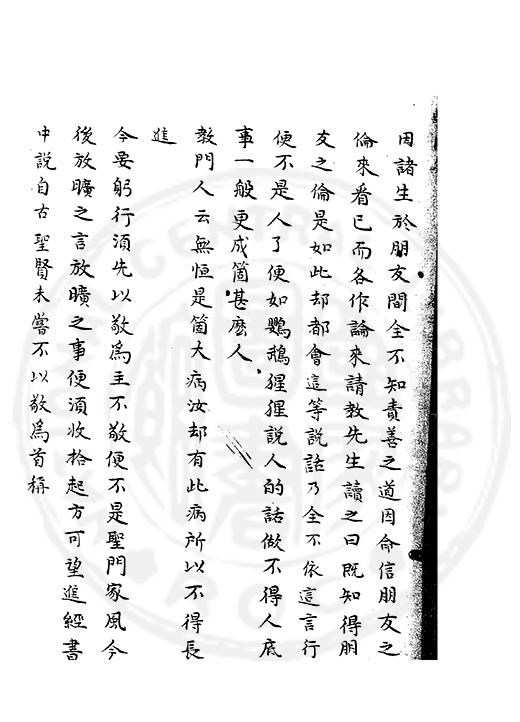 因諸生於朋友間全不知責善之道因命信朋友之
倫來看已而各作論來請教先生讀之曰既知得朋
友之倫是如此却都會這等說話乃全不依這言行
便不是人了便如鸚鵡猩猩說人的話做不得人底
事一般更成箇甚麽人
教門人云無恒是箇大病汝却有此病所以不得長
進
今要躬行湏先以敬爲主不敬便不是聖門家風今
後放曠之言放曠之事便湏收拾起方可望進經書
中説自古聖賢未嘗不以敬爲首稱